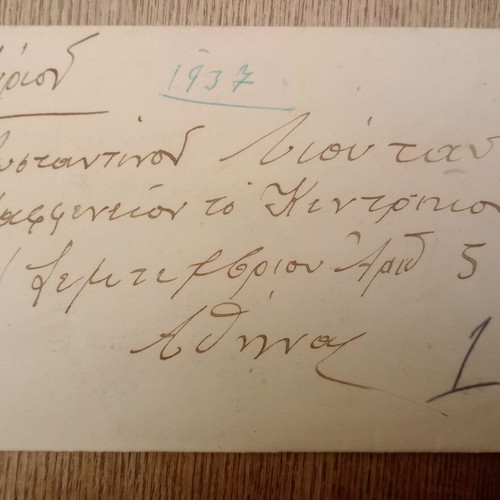 ύριον 1937
ωνσταντίνον Λιούταν
αφφενείον το Κεντρικον
Σεπτεμβρίου Αριθ 5
Αθήνας
1